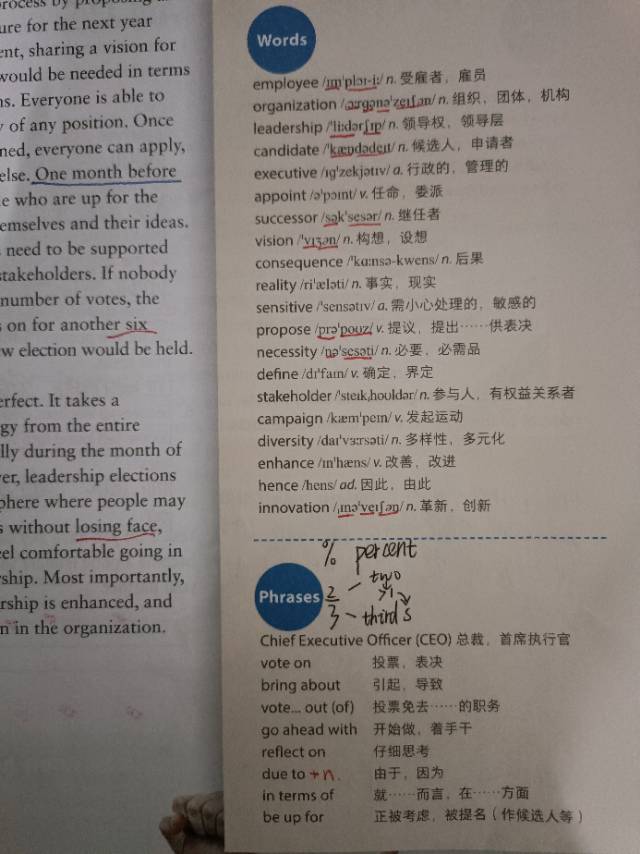 process by proposing
ure for the next year
ent, sharing a vision for
would be needed in terms
ns. Everyone is able to
of any position. Once
ned, everyone can apply,
else. One month before
e who are up for the
emselves and their ideas.
need to be supported
stakeholders. If nobody
number of votes, the
s on for another six
w election would be held.
erfect. It takes a
gy from the entire
lly during the month of
er, leadership elections
phere where people may
s without losing face,
el comfortable going in
rship. Most importantly,
rship is enhanced, and
n in the organization.
Words
employee /ɪmˈplɔɪ-iː/ n. 受雇者，雇员
organization /ˌɔːrgənəˈzeɪʃən/ n. 组织，团体，机构
leadership /ˈliːdərʃɪp/ n. 领导权，领导层
candidate /ˈkændədeɪt/ n. 候选人，申请者
executive /ɪgˈzekjətɪv/ a. 行政的，管理的
appoint /əˈpɔɪnt/ v. 任命，委派
successor /səkˈsesər/ n. 继任者
vision /ˈvɪʒən/ n. 构想，设想
consequence /ˈkɑːnsə-kwens/ n. 后果
reality /riˈæləti/ n. 事实，现实
sensitive /ˈsensətɪv/ a. 需小心处理的，敏感的
propose /prəˈpoʊz/ v. 提议，提出……供表决
necessity /nəˈsesəti/ n. 必要，必需品
define /dɪˈfaɪn/ v. 确定，界定
stakeholder /ˈsteɪkˌhoʊldər/ n. 参与人，有权益关系者
campaign /kæmˈpeɪn/ v. 发起运动
diversity /daɪˈvɜːrsəti/ n. 多样性，多元化
enhance /ɪnˈhæns/ v. 改善，改进
hence /hens/ ad. 因此，由此
innovation /ˌɪnəˈveɪʃən/ n. 革新，创新
% percent
2 – two
3 – thirds
Phrases
Chief Executive Officer (CEO) 总裁，首席执行官
vote on 投票，表决
bring about 引起，导致
vote... out (of) 投票免去……的职务
go ahead with 开始做，着手干
reflect on 仔细思考
due to +n. 由于，因为
in terms of 就……而言，在……方面
be up for 正被考虑，被提名（作候选人等）